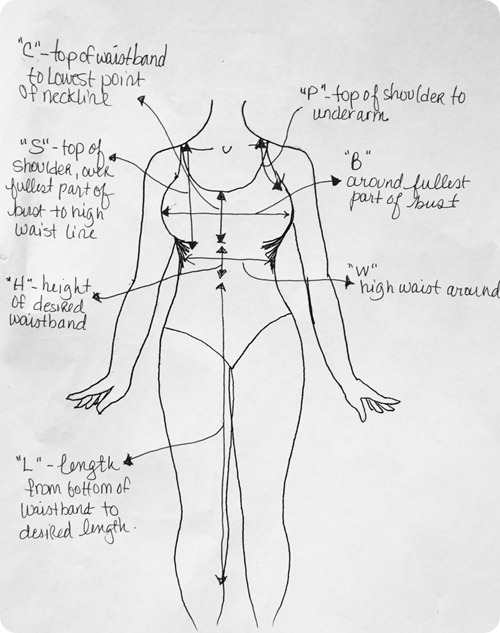 "C"-top of waistband
to lowest point
of neckline
"P"-top of shoulder to
underarm
"S"-top of
shoulder, over
fullest part of
bust to high
waist line
"B"
around fullest
part of bust
"H"-height
of desired
waistband
"W"
high waist around
"L"-length
from bottom of
waistband to
desired length.